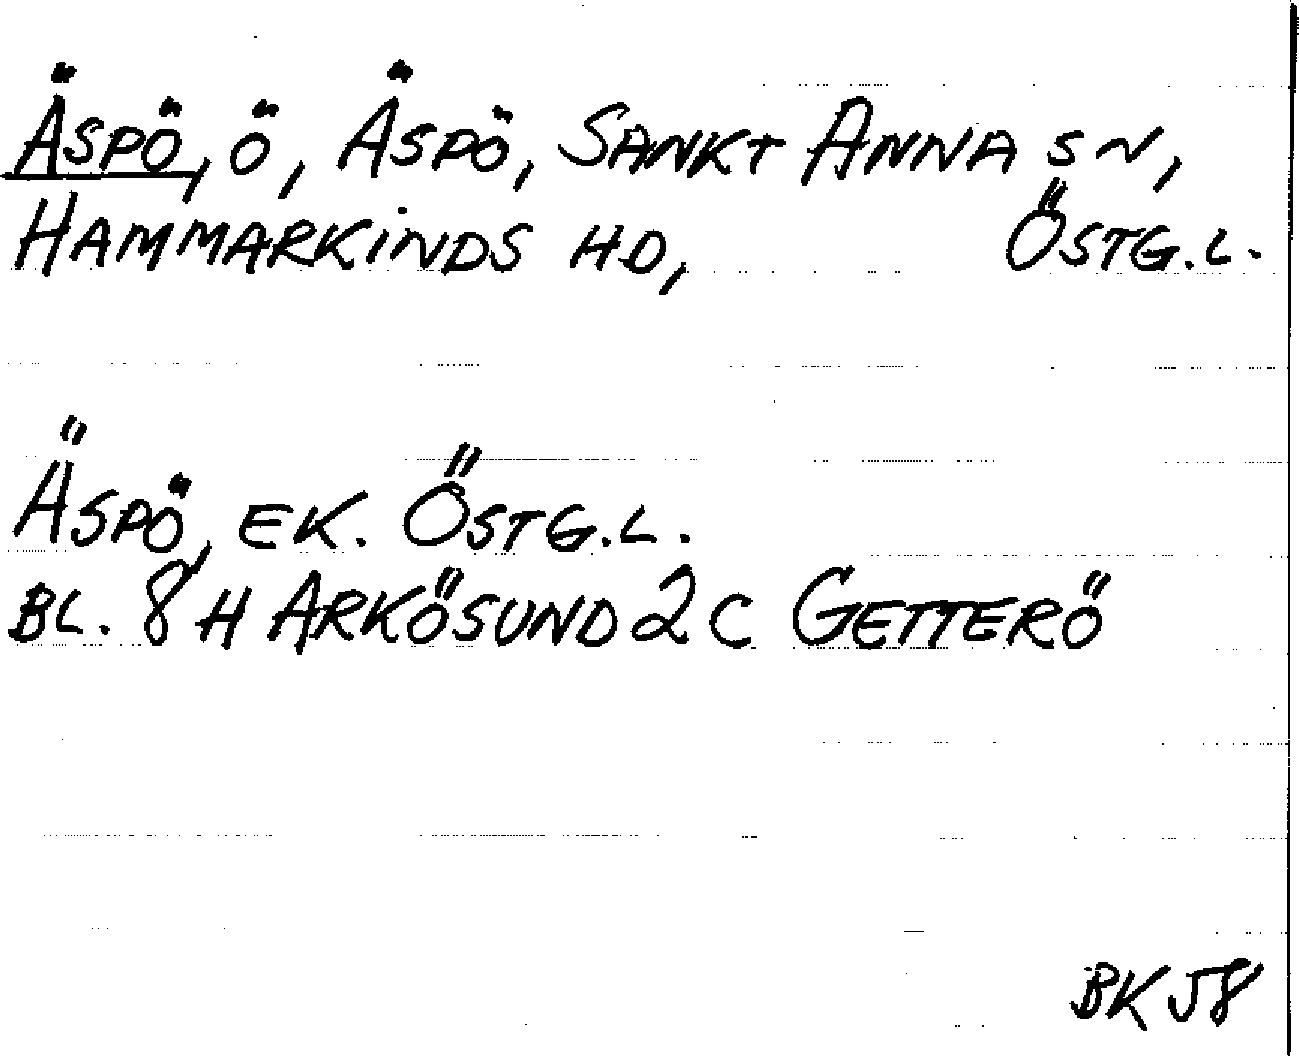 ÄSPÖ, Ö, ÄSPÖ, SANKT ANNA SN,
HAMMARKINDS HD, ÖSTG.L.
ÄSPÖ, EK. ÖSTG.L.
BL. 8 H ARKÖSUND 2 C GETTERÖ
BK 58